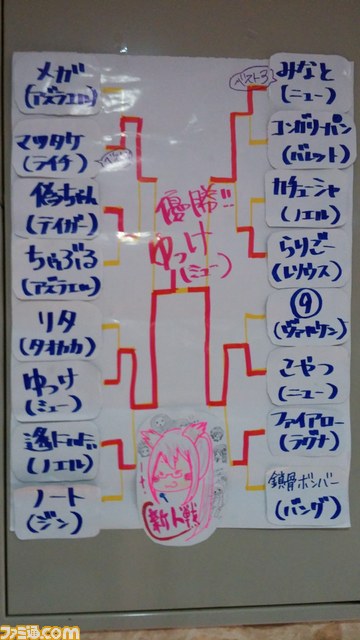 メガ
(アズラエル)
マツタケ
(ライチ)
偽ちゃん
(テイガー)
ちゃぶる
(アズラエル)
リタ
(タオカカ)
ゆっけ
(ミュー)
(ノエル)
ノート
(ジン)
優勝!!
ゆっけ
(ミュー)
新人戦
ベスト3
みなと
(ニュー)
コンガリーパン
(バレット)
カチューシャ
(ノエル)
らりごー
(レリウス)
⑨
(ヴァルケン)
こやつ
(ニュー)
ファイアロー
(ラグナ)
鎖骨ボンバー
(バング)
ファミ通.com